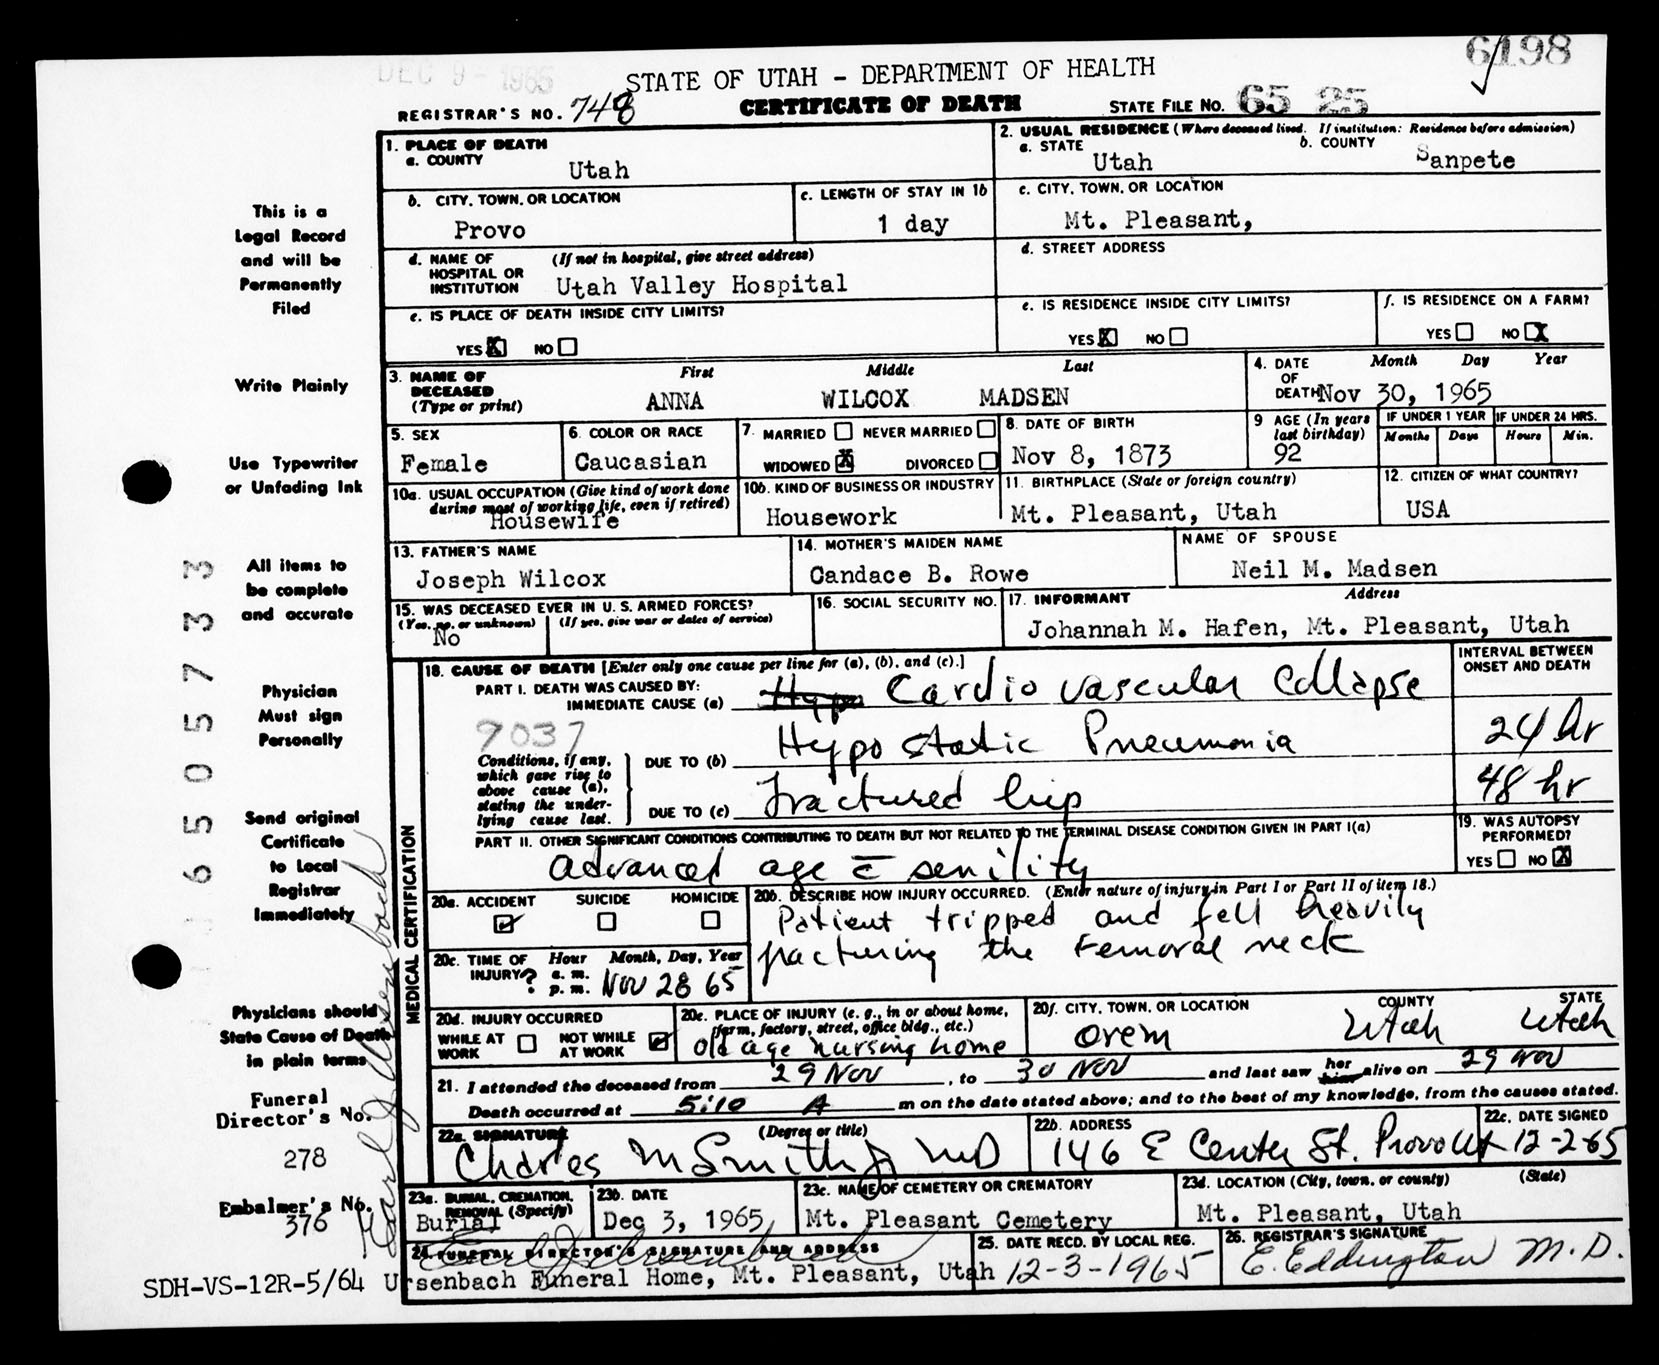 DEC 9 - 1965
6198
STATE OF UTAH - DEPARTMENT OF HEALTH
REGISTRAR'S NO. 748 CERTIFICATE OF DEATH STATE FILE NO. 65 25
1. PLACE OF DEATH
a. COUNTY Utah
2. USUAL RESIDENCE (Where deceased lived. If institution: Residence before admission)
a. STATE Utah b. COUNTY Sanpete
b. CITY, TOWN, OR LOCATION Provo
c. LENGTH OF STAY IN 1b 1 day
c. CITY, TOWN, OR LOCATION Mt. Pleasant,
d. NAME OF HOSPITAL OR INSTITUTION (If not in hospital, give street address) Utah Valley Hospital
d. STREET ADDRESS
e. IS PLACE OF DEATH INSIDE CITY LIMITS?
YES X NO
e. IS RESIDENCE INSIDE CITY LIMITS?
YES X NO
f. IS RESIDENCE ON A FARM?
YES NO X
3. NAME OF DECEASED (Type or print) First Middle Last
ANNA WILCOX MADSEN
4. DATE OF DEATH Month Day Year
Nov 30, 1965
5. SEX Female
6. COLOR OR RACE Caucasian
7. MARRIED NEVER MARRIED
WIDOWED X DIVORCED
8. DATE OF BIRTH Nov 8, 1873
9 AGE (In years last birthday) 92
IF UNDER 1 YEAR Months Days
IF UNDER 24 HRS. Hours Min.
10a. USUAL OCCUPATION (Give kind of work done during most of working life, even if retired) Housewife
10b. KIND OF BUSINESS OR INDUSTRY Housework
11. BIRTHPLACE (State or foreign country) Mt. Pleasant, Utah
12. CITIZEN OF WHAT COUNTRY? USA
13. FATHER'S NAME Joseph Wilcox
14. MOTHER'S MAIDEN NAME Candace B. Rowe
NAME OF SPOUSE Neil M. Madsen
15. WAS DECEASED EVER IN U. S. ARMED FORCES?
(Yes, no, or unknown) (If yes, give war or dates of service)
No
16. SOCIAL SECURITY NO.
17. INFORMANT Address
Johannah M. Hafen, Mt. Pleasant, Utah
18. CAUSE OF DEATH [Enter only one cause per line for (a), (b), and (c).]
INTERVAL BETWEEN ONSET AND DEATH
PART I. DEATH WAS CAUSED BY:
IMMEDIATE CAUSE (a) Hypo Cardio vascular Collapse
9037
Conditions, if any, which gave rise to above cause (a), stating the underlying cause last.
DUE TO (b) Hypo static Pneumonia 24 hr
DUE TO (c) Fractured hip 48 hr
PART II. OTHER SIGNIFICANT CONDITIONS CONTRIBUTING TO DEATH BUT NOT RELATED TO THE TERMINAL DISEASE CONDITION GIVEN IN PART I(a)
advanced age c̄ senility
19. WAS AUTOPSY PERFORMED?
YES NO X
MEDICAL CERTIFICATION
20a. ACCIDENT SUICIDE HOMICIDE
20b. DESCRIBE HOW INJURY OCCURRED. (Enter nature of injury in Part I or Part II of item 18.)
Patient tripped and fell heavily
fracturing the Femoral neck
20c. TIME OF INJURY? Hour Month, Day, Year
a. m.
p. m. Nov 28 65
20d. INJURY OCCURRED
WHILE AT WORK NOT WHILE AT WORK
20e. PLACE OF INJURY (e. g., in or about home, farm, factory, street, office bldg., etc.)
old age nursing home
20f. CITY, TOWN, OR LOCATION COUNTY STATE
Orem Utah Utah
21. I attended the deceased from 29 Nov, to 30 Nov and last saw her him alive on 29 Nov
Death occurred at 5:10 A m on the date stated above; and to the best of my knowledge, from the causes stated.
22a. SIGNATURE (Degree or title)
Charles M Smith Jr MD
22b. ADDRESS
146 E Center St. Provo Ut
22c. DATE SIGNED
12-2-65
23a. BURIAL, CREMATION, REMOVAL (Specify) Burial
23b. DATE Dec 3, 1965
23c. NAME OF CEMETERY OR CREMATORY Mt. Pleasant Cemetery
23d. LOCATION (City, town, or county) (State)
Mt. Pleasant, Utah
24. FUNERAL DIRECTOR'S SIGNATURE AND ADDRESS
Earl J Ursenbach
Ursenbach Funeral Home, Mt. Pleasant, Utah
25. DATE RECD. BY LOCAL REG. 12-3-1965
26. REGISTRAR'S SIGNATURE E. Eddington M.D.
SDH-VS-12R-5/64
This is a
Legal Record
and will be
Permanently
Filed
Write Plainly
Use Typewriter
or Unfading Ink
All items to
be complete
and accurate
Physician
Must sign
Personally
Send original
Certificate
to Local
Registrar
Immediately
Physicians should
State Cause of Death
in plain terms
Funeral
Director's No.
278
Embalmer's No.
376
Earl J Ursenbach
6505733